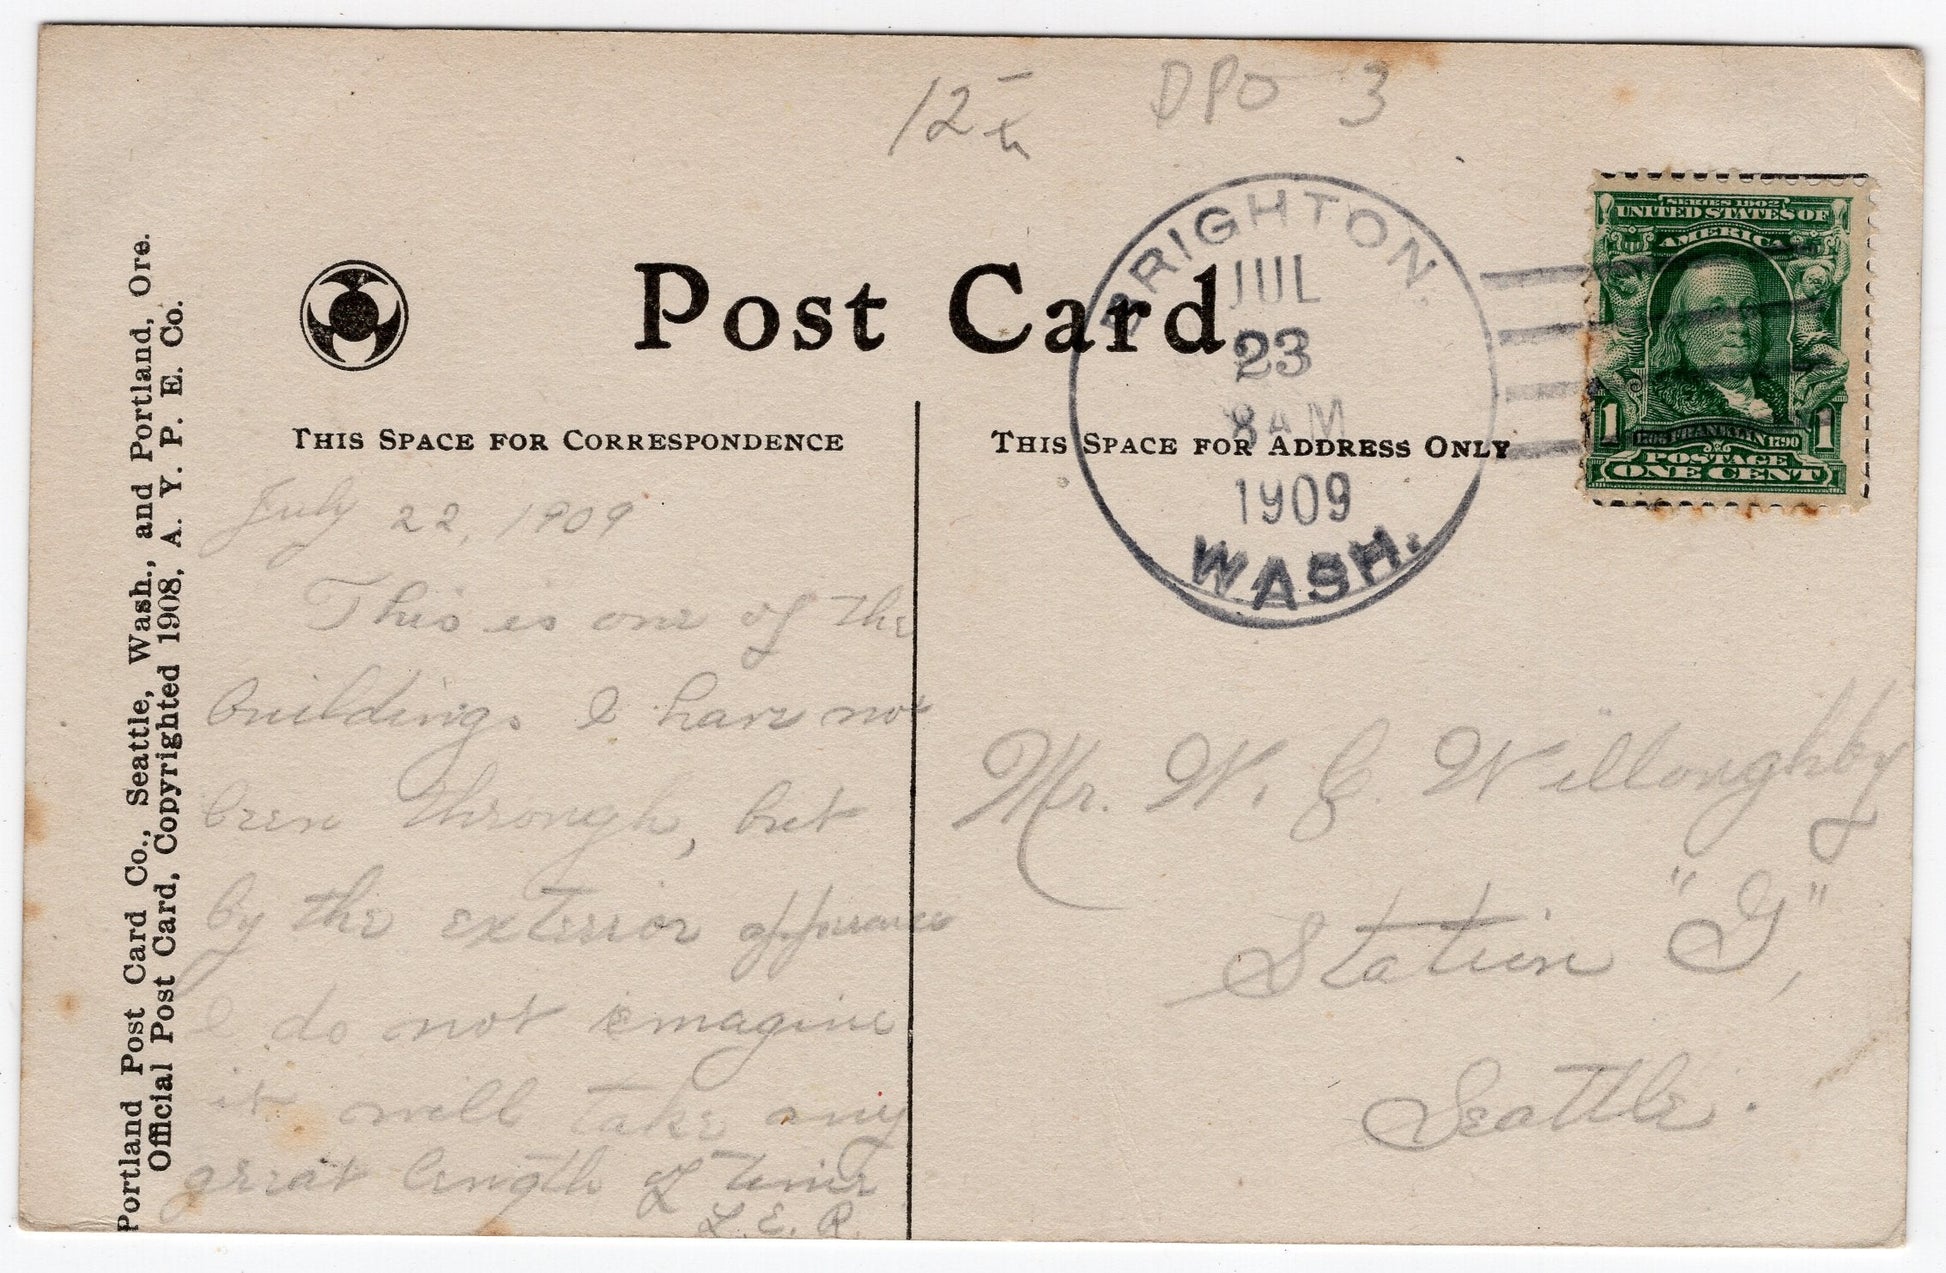 DPO 3
Post Card
BRIGHTON,
JUL
23
8 AM
1909
WASH.
SERIES 1902
UNITED STATES OF
AMERICA
1 1
1706 FRANKLIN 1790
POSTAGE
ONE CENT
THIS SPACE FOR CORRESPONDENCE
THIS SPACE FOR ADDRESS ONLY
July 22, 1909
This is one of the
buildings I have not
been through, but
by the exterior appearance
I do not imagine
it will take any
great length of time
L. E. R.
Mr. W. E. Willoughby
Station "G",
Seattle.
Portland Post Card Co., Seattle, Wash., and Portland, Ore.
Official Post Card, Copyrighted 1908, A. Y. P. E. Co.